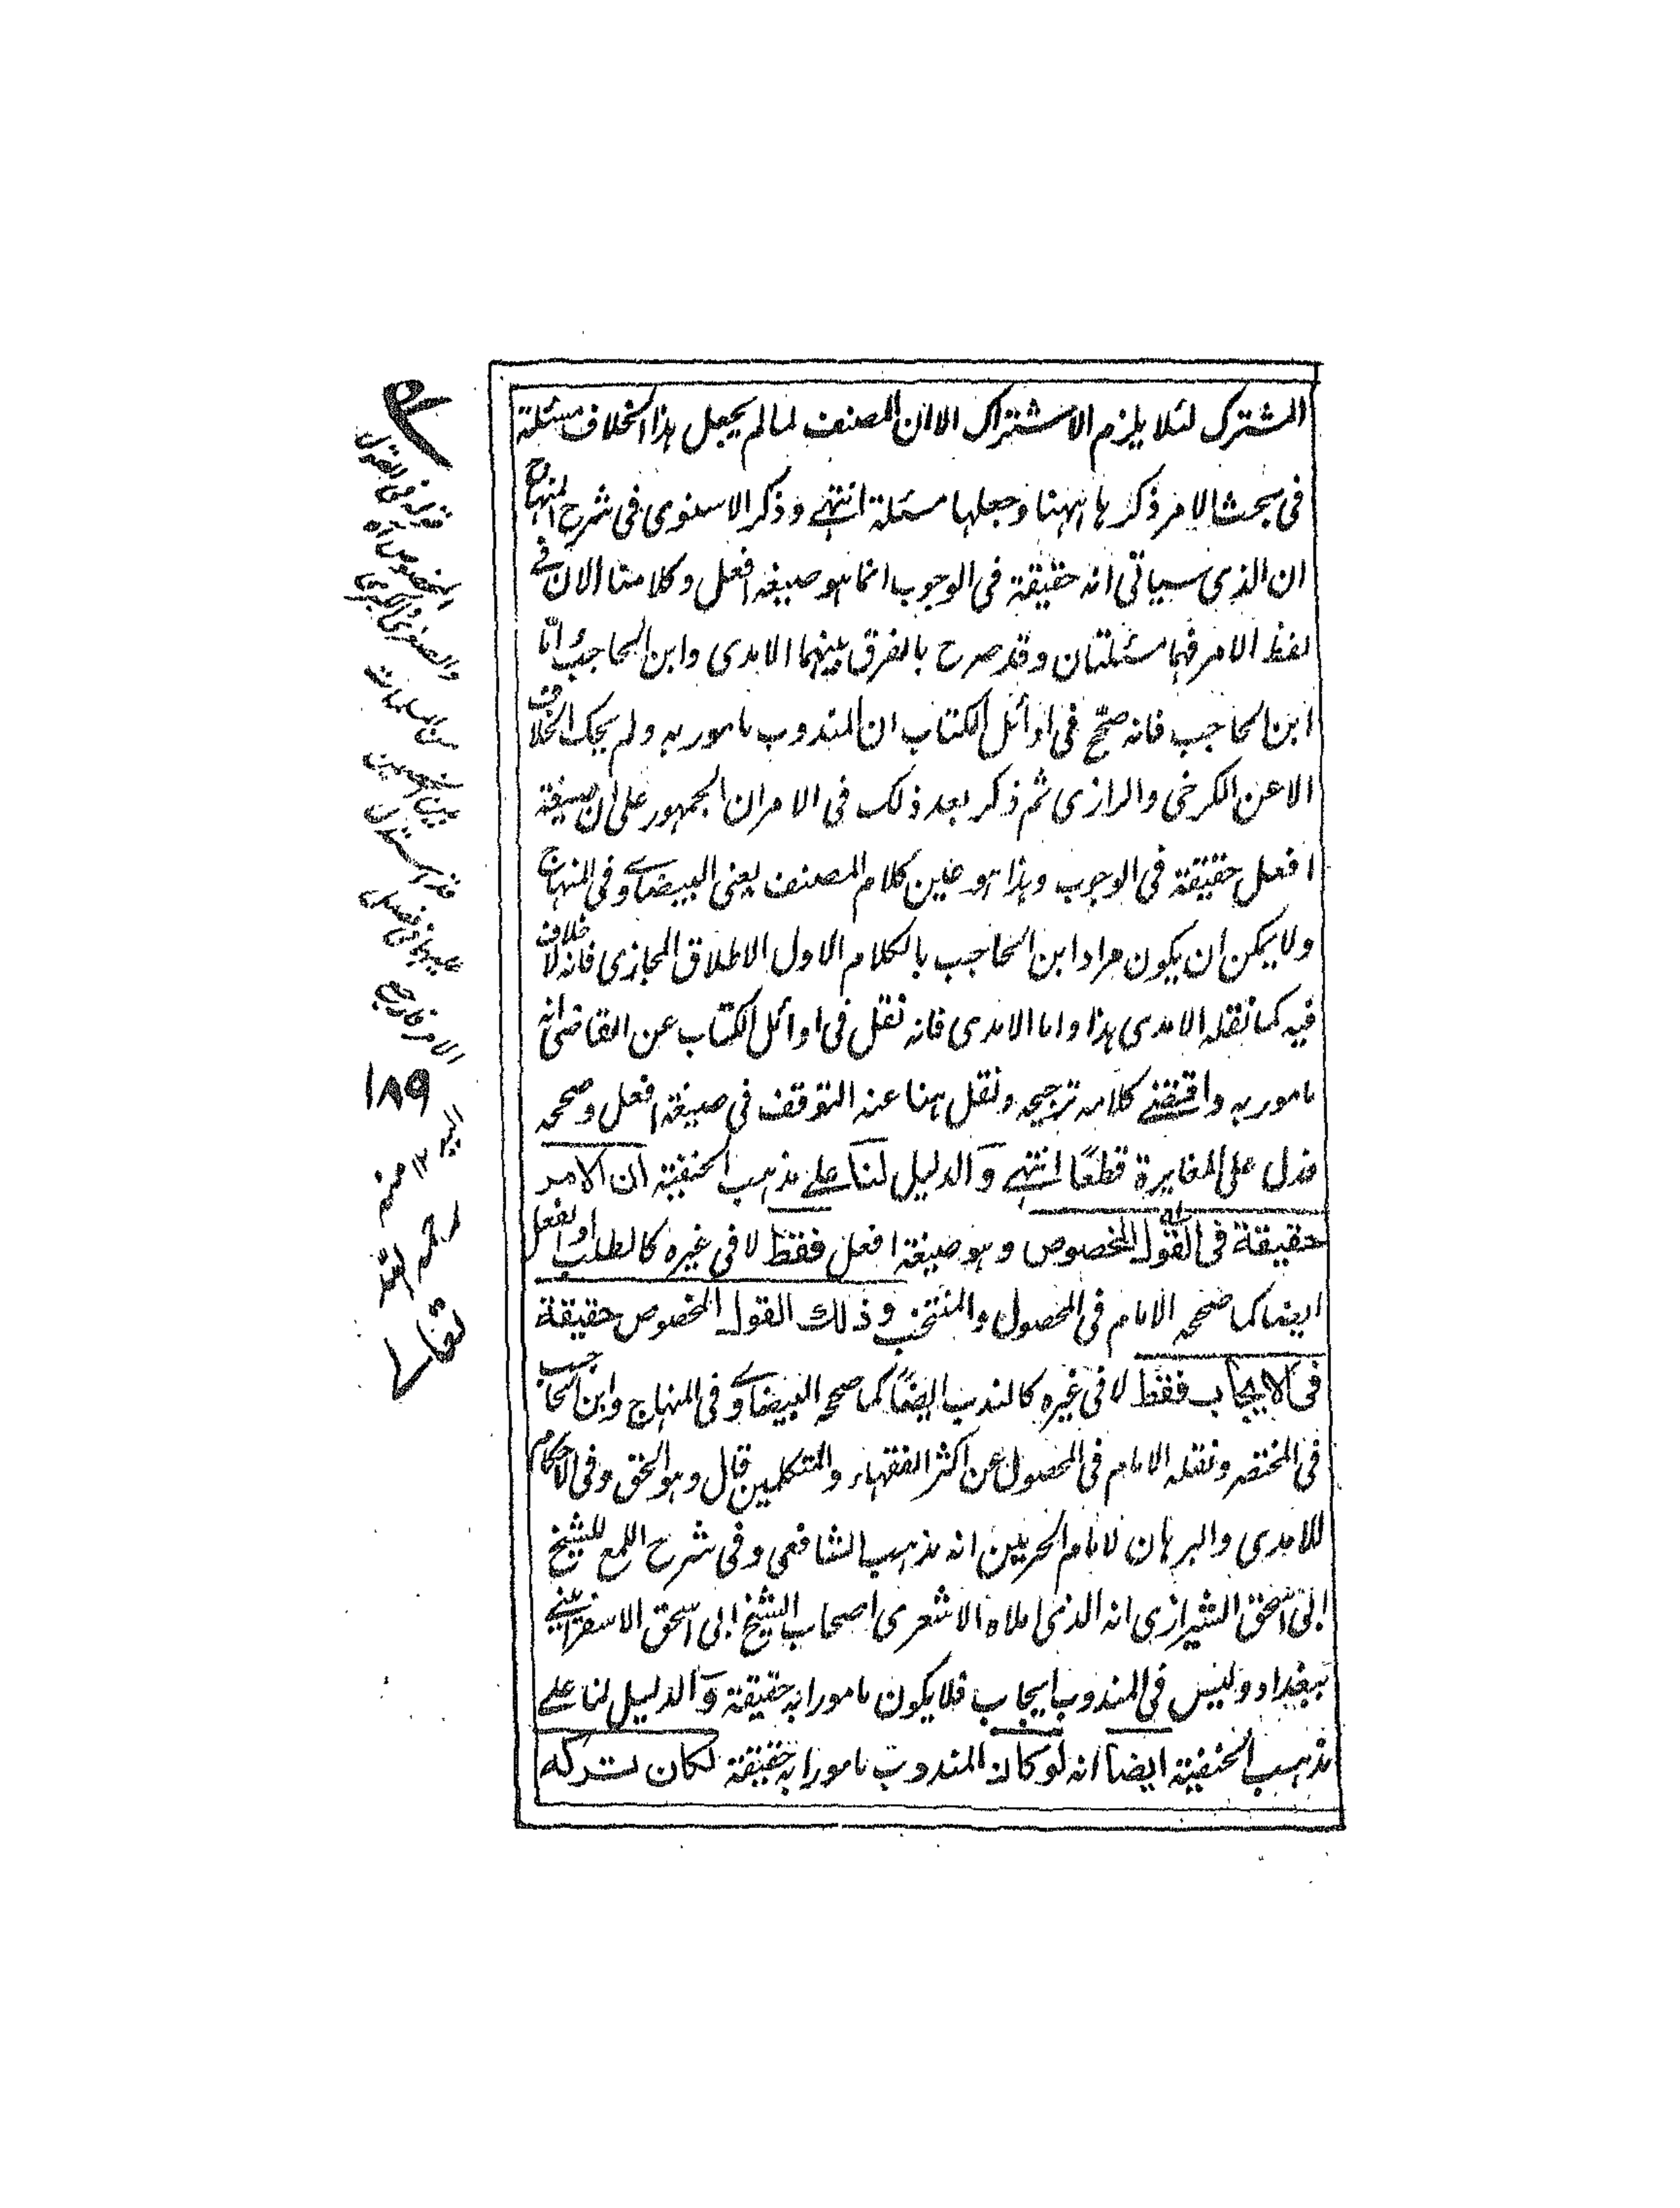 المشترك لئلا يلزم الاشتراك الا ان المصنف لما لم يجعل هذا الخلاف مسئلة
فى بحث الامر ذكرها ههنا وجعلها مسئلة انتهى وذكر الاسنوى فى شرح المنهاج
ان الذى سياتى انه حقيقة فى الوجوب انما هو صيغة افعل وكلامنا الان فى
لفظ الامر فهما مسئلتان وقد صرح بالفرق بينهما الامدى وابن الحاجب امّا
ابن الحاجب فانه صحّح فى اوائل الكتاب ان المندوب مامور به ولم يحك الخلاف
الا عن الكرخى والرازى ثم ذكر بعد ذلك فى الامر ان الجمهور على ان صيغة
افعل حقيقة فى الوجوب وهذا هو عين كلام المصنف يعنى البيضاوى فى المنهاج
ولا يمكن ان يكون مراد ابن الحاجب بالكلام الاول الاطلاق المجازى فانه لا خلاف
فيه كما نقله الامدى هذا واما الامدى فانه نقل فى اوائل الكتاب عن القاضى انه
مامور به واقتضى كلامه ترجيحه ونقل هنا عنه التوقف فى صيغة افعل وصححه
فدل على المغايرة قطعًا انتهى و الدليل لنا على مذهب الحنفية ان الامر
حقيقة فى القول المخصوص وهو صيغة افعل فقط لا فى غيره كالطلب او الفعل
ايضا كما صححه الامام فى المحصول والمنتخب و ذلك القول المخصوص حقيقة
فى الايجاب فقط لا فى غيره كالندب ايضًا كما صححه البيضاوى فى المنهاج وابن الحاجب
فى المختصر ونقله الامام فى المحصول عن اكثر الفقهاء والمتكلمين قال وهو الحق وفى الاحكام
للامدى والبرهان لامام الحرمين انه مذهب الشافعى وفى شرح اللمع للشيخ
ابى اسحق الشيرازى انه الذى املاه الاشعرى اصحاب الشيخ ابى اسحق الاسفرائينى
ببغداد وليس فى المندوب ايجاب فلا يكون مامورا به حقيقة و الدليل لنا على
مذهب الحنفية ايضا انه لو كان المندوب مامورا به حقيقة لكان تركه
١٨٩
١٢ منه
رحمه الله
تعالى